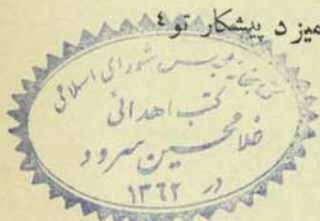 میزد پیشکار تو ۴
کتابخانه مجلس شورای اسلامی
کتب اهدائی
غلامحسین سرود
در ۱۳۶۲